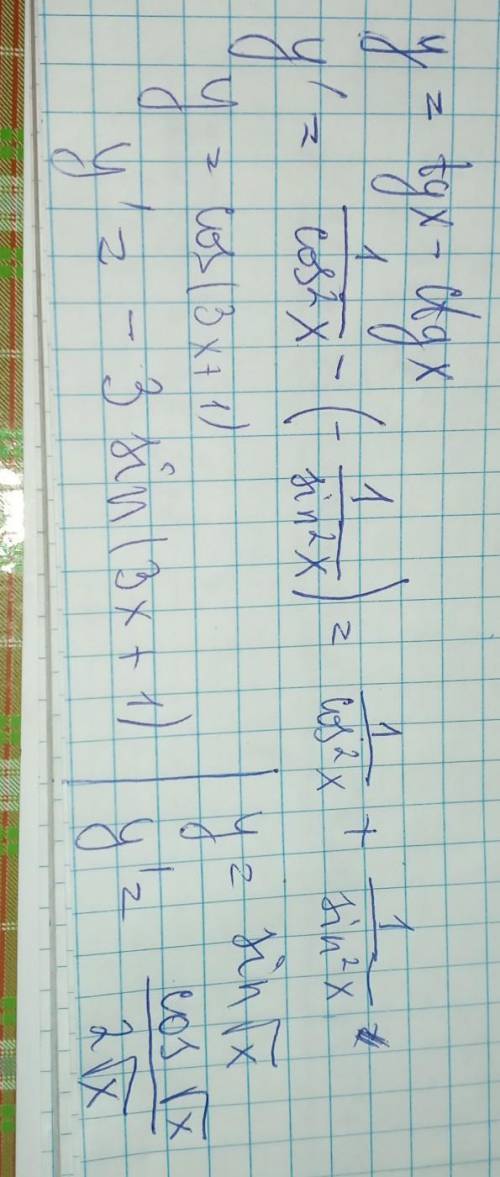 y = tgx - ctgx
y' = 1/cos²x - (- 1/sin²x) = 1/cos²x + 1/sin²x
y = cos(3x+1)
y' = - 3 sin(3x + 1)
y = sin√x
y' = cos√x/2√x